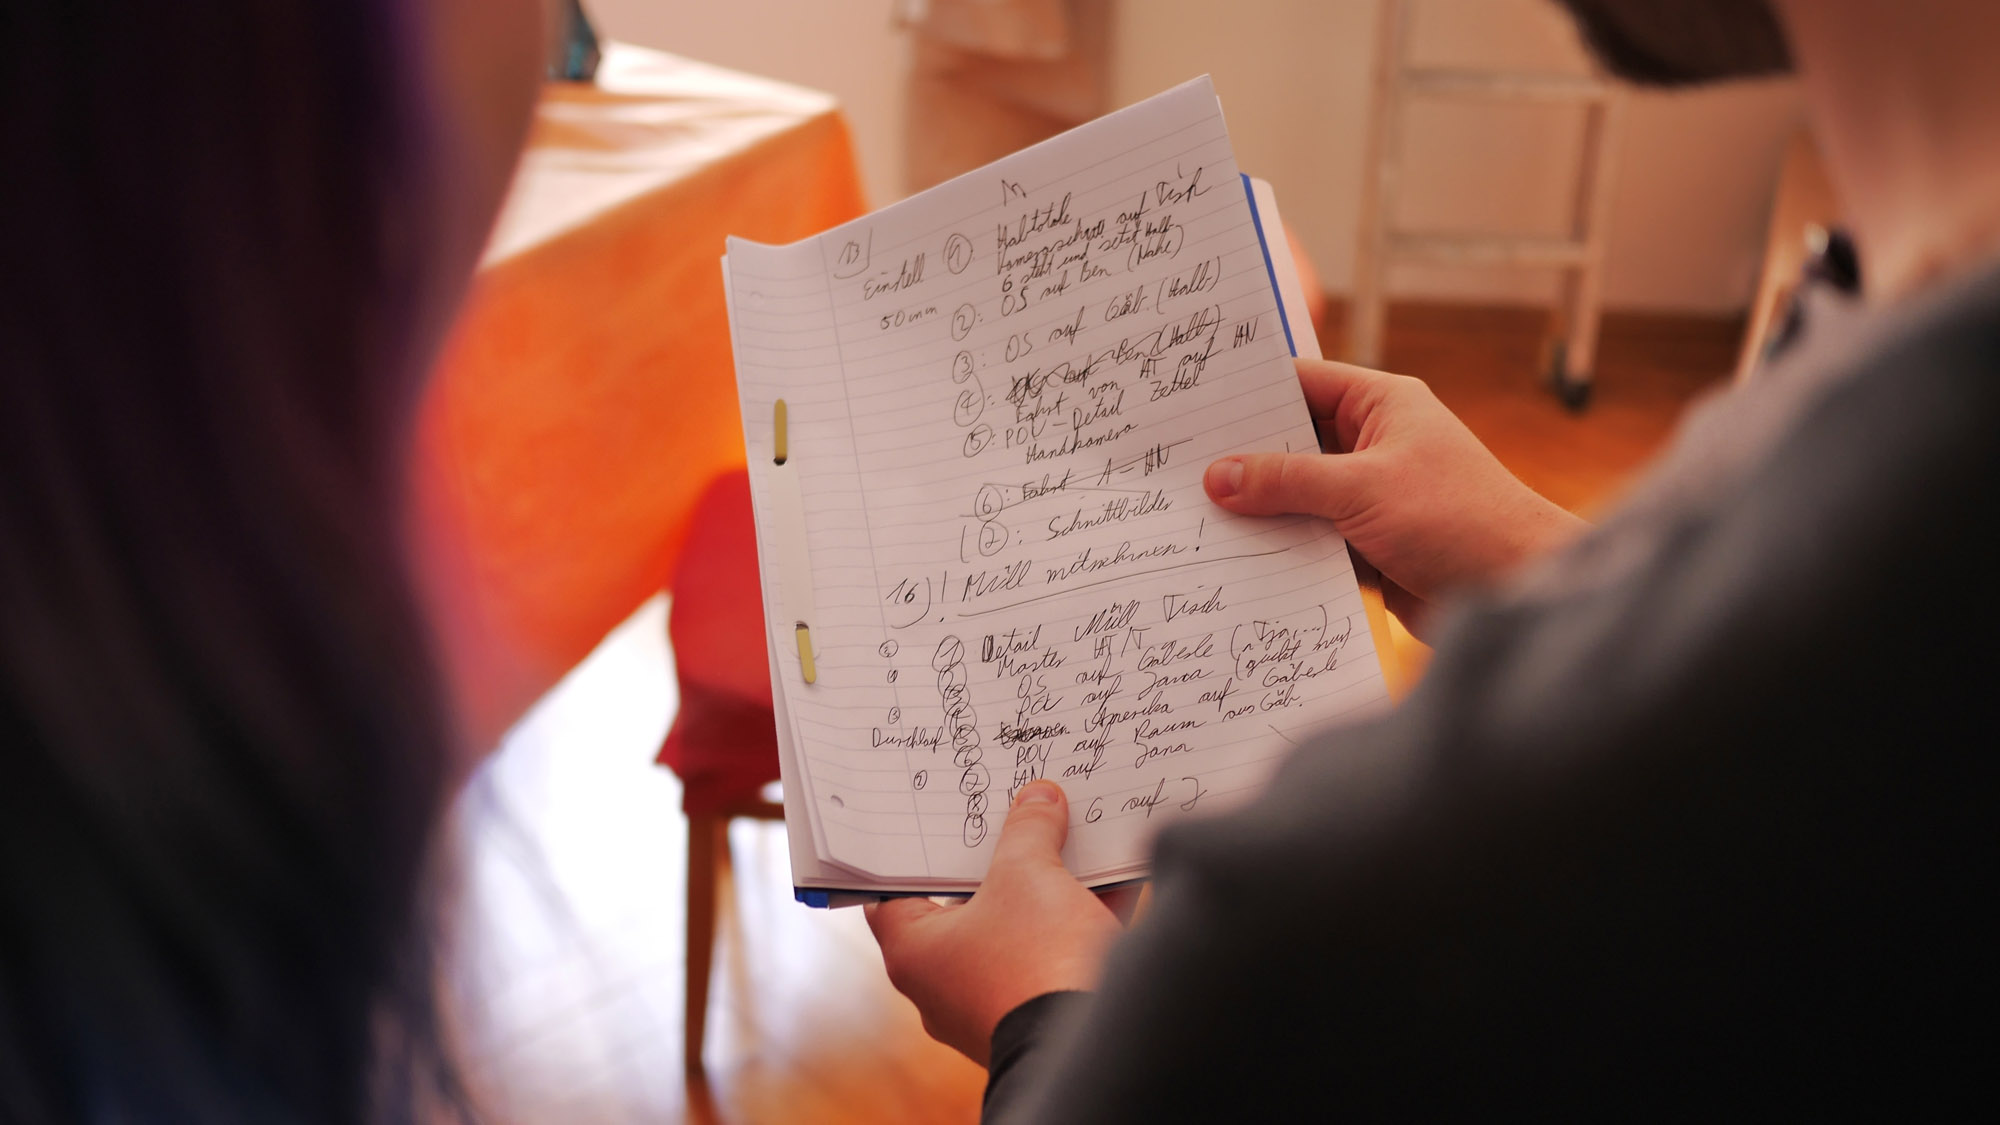 13)
Einstell ① Halbtotale
50mm Kameraschwenk auf Tisch
G steht und setzt Halb-
②: OS auf Ben (Nahe)
③: OS auf Gäb. (Halb-)
④: auf Ben (Halb)
Fahrt von HT auf HN
⑤: POV-Detail Zettel
Handkamera
⑥: Fahrt A-HN
(②: Schnittbilder
16) ! Müll mitnehmen!
① Detail Müll Tisch
Master HT/T
OS auf Gäberle (~Tja,...)
auf Jana (guckt nur)
Durchlauf Amerika auf Gäberle
POV auf Raum aus Gäb.
② HN auf Jana
⑨ G auf J